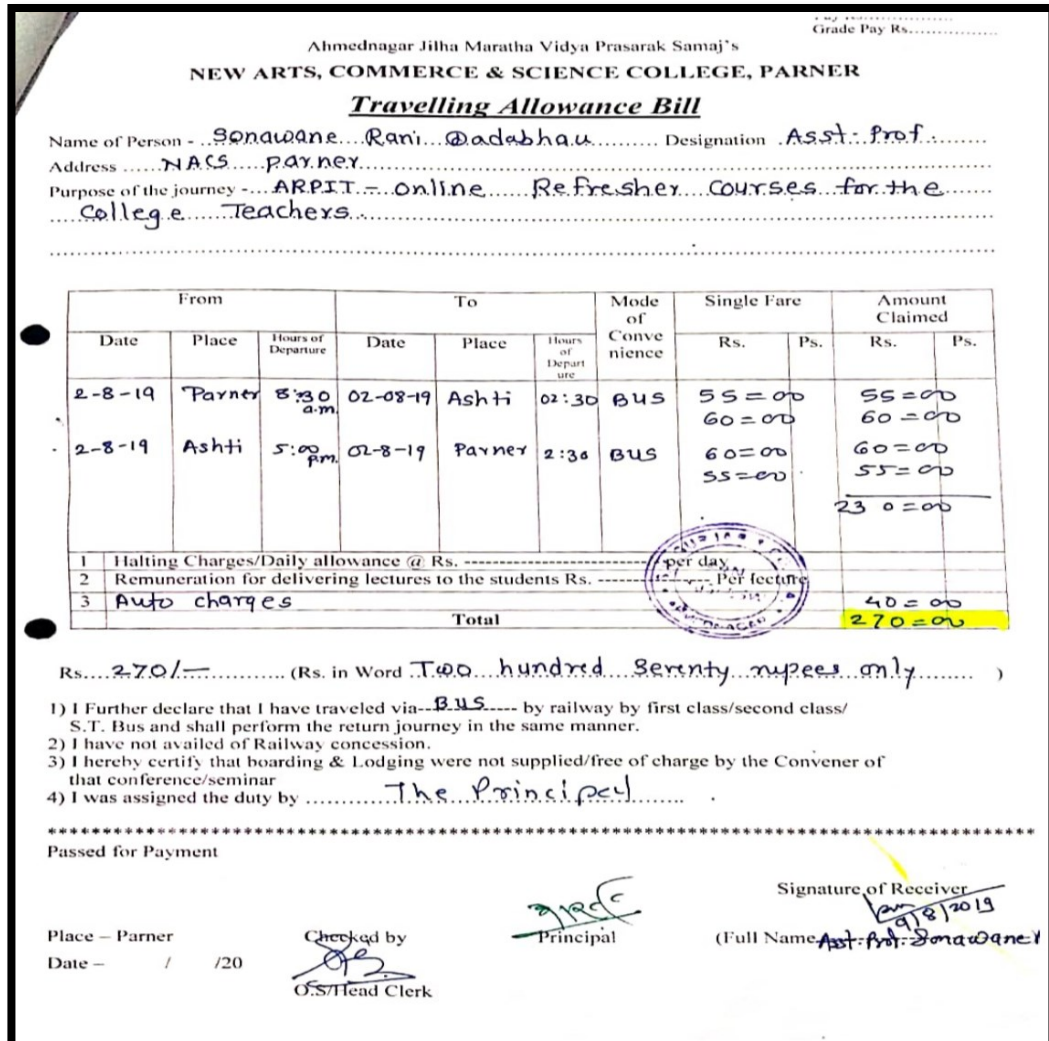 Grade Pay Rs................
Ahmednagar Jilha Maratha Vidya Prasarak Samaj's
NEW ARTS, COMMERCE & SCIENCE COLLEGE, PARNER
Travelling Allowance Bill
Name of Person - Sonawane Rani Dadabhau Designation Asst. Prof.
Address NACS parner
Purpose of the journey - ARPIT - online Refresher Courses for the
College Teachers.
From To Mode of Conve nience Single Fare Amount Claimed
Date Place Hours of Departure Date Place Hours of Depart ure Rs. Ps. Rs. Ps.
2-8-19 Parner 8:30 a.m. 02-08-19 Ashti 02:30 BUS 55=00 55=00
60=00 60=00
2-8-19 Ashti 5:00 p.m. 02-8-19 Parner 2:30 BUS 60=00 60=00
55=00 55=00
230=00
1 Halting Charges/Daily allowance @ Rs. ---------------------- per day
2 Remuneration for delivering lectures to the students Rs. ---------------- Per lecture
3 Auto charges 40=00
Total 270=00
Rs. 270/- (Rs. in Word Two hundred Seventy rupees only )
1) I Further declare that I have traveled via--BUS---- by railway by first class/second class/
S.T. Bus and shall perform the return journey in the same manner.
2) I have not availed of Railway concession.
3) I hereby certify that boarding & Lodging were not supplied/free of charge by the Convener of
that conference/seminar
4) I was assigned the duty by The Principal
Passed for Payment
Signature of Receiver
9/8/2019
Place – Parner Checked by Principal (Full Name Asst. Prof. Sonawane
Date – / /20
O.S/Head Clerk